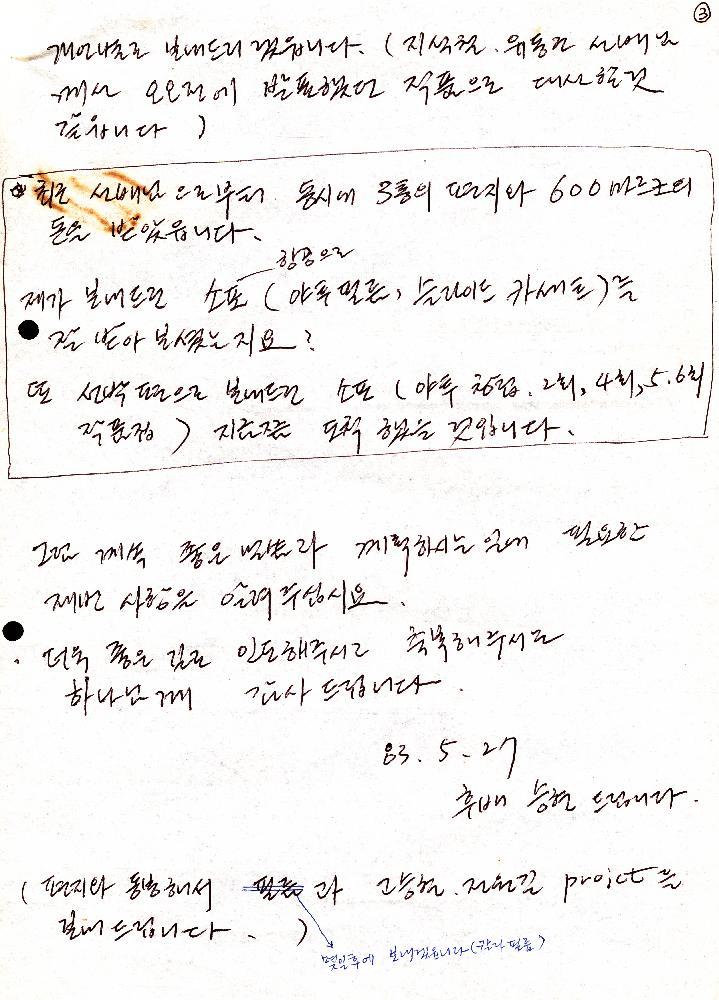 ③
개인별로 보내드리겠읍니다. (지석철. 유동근 선배님
께서 오오전에 발표했던 작품으로 대신할것
같읍니다 )
선배님으로부터 동시에 3통의 편지와 600마르크의
돈을 받았읍니다.
항공으로
제가 보내드린 소포 (야투필름, 슬라이드 카세트)를
잘 받아 보셨는지요?
또 선박편으로 보내드린 소포 (야투 창립. 2회, 4회, 5.6회
작품집 ) 지금쯤 도착 했을 것입니다.
그럼 계속 좋은 계획하시는 일에 필요한
제반 사항을 알려주십시요.
더욱 좋은 길로 인도해주시고 축복해주시는
하나님께 감사드립니다.
83. 5. 27
후배 승현 드립니다.
(편지와 동봉해서 필름과 고승현. project를
보내드립니다. )
몇일후에 보내겠읍니다 (칼라필름)